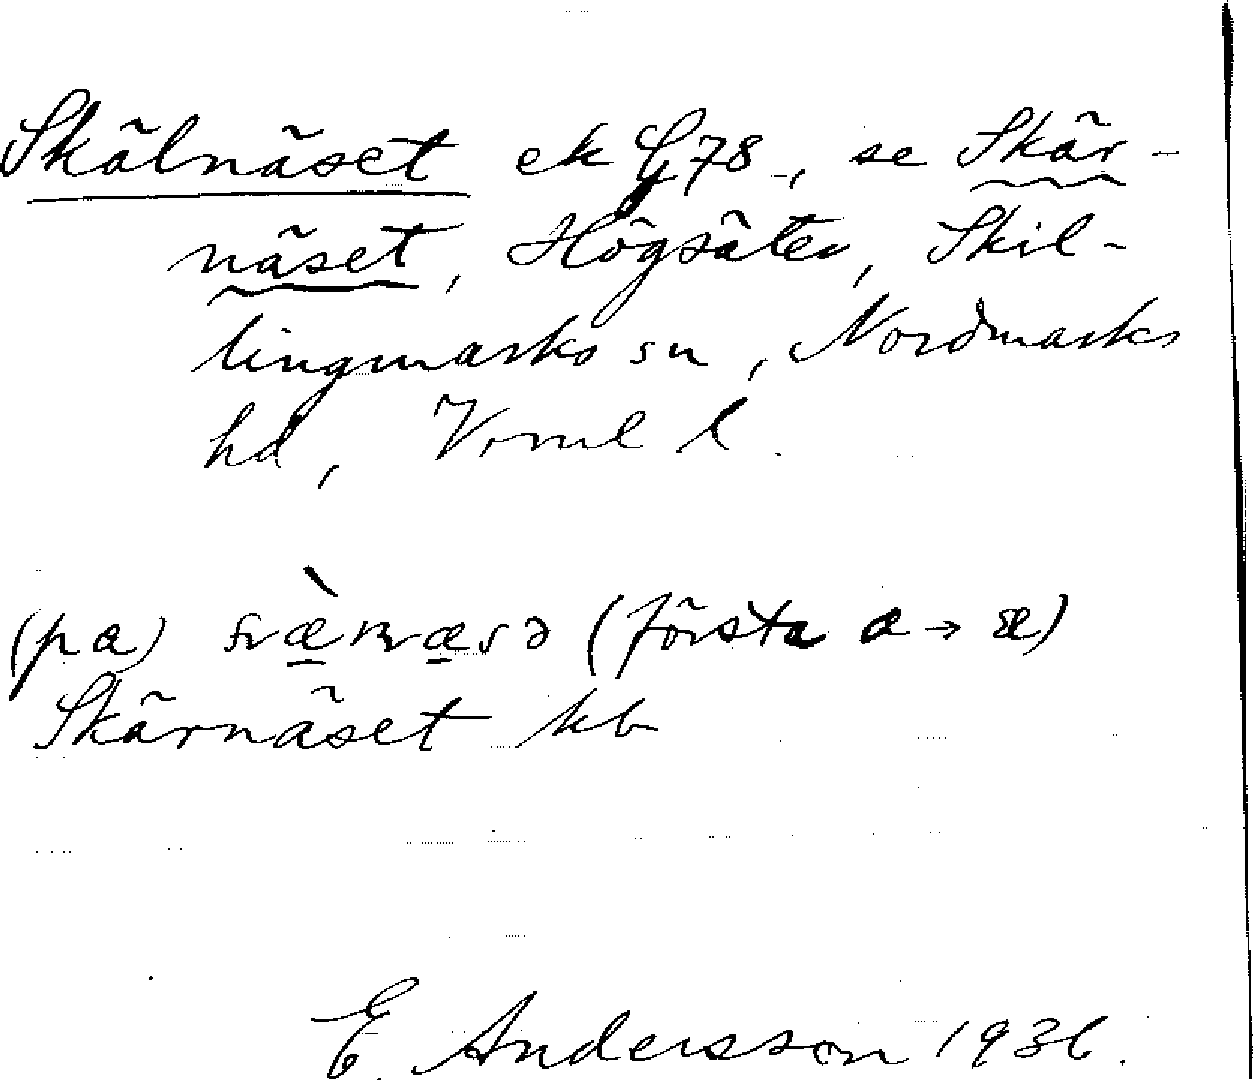 Skålnäset ek G78, se Skär-
näset, Högsäter, Skil-
lingmarks sn, Nordmarks
hd, Vrml l.
(pa) (första a → æ)
Skärnäset kb
E. Andersson 1936.